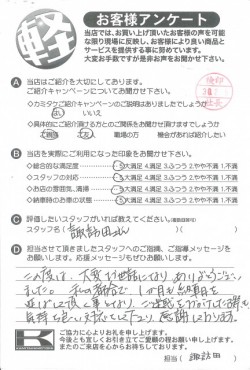 軽
お客様アンケート
当店では、お買い上げ頂いたお客様の声を可能
な限り現場に反映し、お客様により良い商品と
サービスを提供する事に努めています。
大変お手数ですが是非お声をお聞かせ下さい。
A 当店はご紹介を大切にしております。
ご紹介キャンペーンについてお聞かせ下さい。
◇カミタケご紹介キャンペーンのご説明はありましたでしょうか
はい いいえ
◇具体的にご紹介頂ける方とのご関係をお聞かせ頂けますでしょうか
職場の方 機会があれば紹介したい
B 当店を実際にご利用になった印象をお聞かせ下さい。
◇総合的な満足度 5大満足 4.満足 3.ふつう 2.やや不満 1.不満
◇スタッフの対応 5大満足 4.満足 3.ふつう 2.やや不満 1.不満
◇お店の雰囲気、清掃 5大満足 4.満足 3.ふつう 2.やや不満 1.不満
◇納車時のお車の状態 5大満足 4.満足 3.ふつう 2.やや不満 1.不満
C 評価したいスタッフがいれば教えてください。
スタッフ名( 諏訪田さん )
D 担当させて頂きましたスタッフへのご指摘、ご指導メッセージを
お願いします。応援メッセージもお願いします。
この度は、大変お世話になりありがとうござい
ました。私の都合で1か月も納期を
延ばして頂く事となり、ご迷惑を
気持ち良い対応をして下さり、感謝しております。
K
ご協力に心よりお礼を申し上げます。
今後とも宜しくお引き立てご愛顧の程お願い申し上げます。
またのご来店を心からお待ちしております。
担当( 諏訪田 )